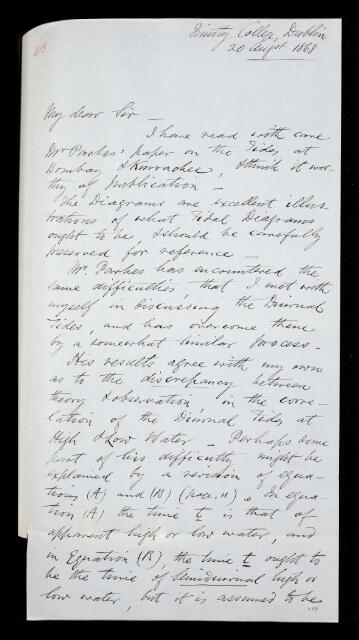 Trinity College, Dublin
20 August 1868
213
My dear Sir —
I have read with care
Mr Parkes' paper on the Tides at
Bombay & Kurrachee, & think it wor-
thy of Publication —
The Diagrams are excellent illus-
trations of what Tidal Diagrams
ought to be & should be carefully
preserved for reference —
Mr. Parkes has encountered the
same difficulties that I met with
myself in discussing the Diurnal
Tides, and has overcome them
by a somewhat similar process.
His results agree with my own
as to the discrepancy between
theory & observation in the corre-
lation of the Diurnal Tides at
High & Low Water — Perhaps some
part of his difficulty might be
explained by a revision of equa-
tions (A) and (B) (page 11). In equa-
tion (A) the time t is that of
apparent high or low water, and
in Equation (B), the time t ought to
be the time of Semidiurnal high or
low water, but it is assumed to be